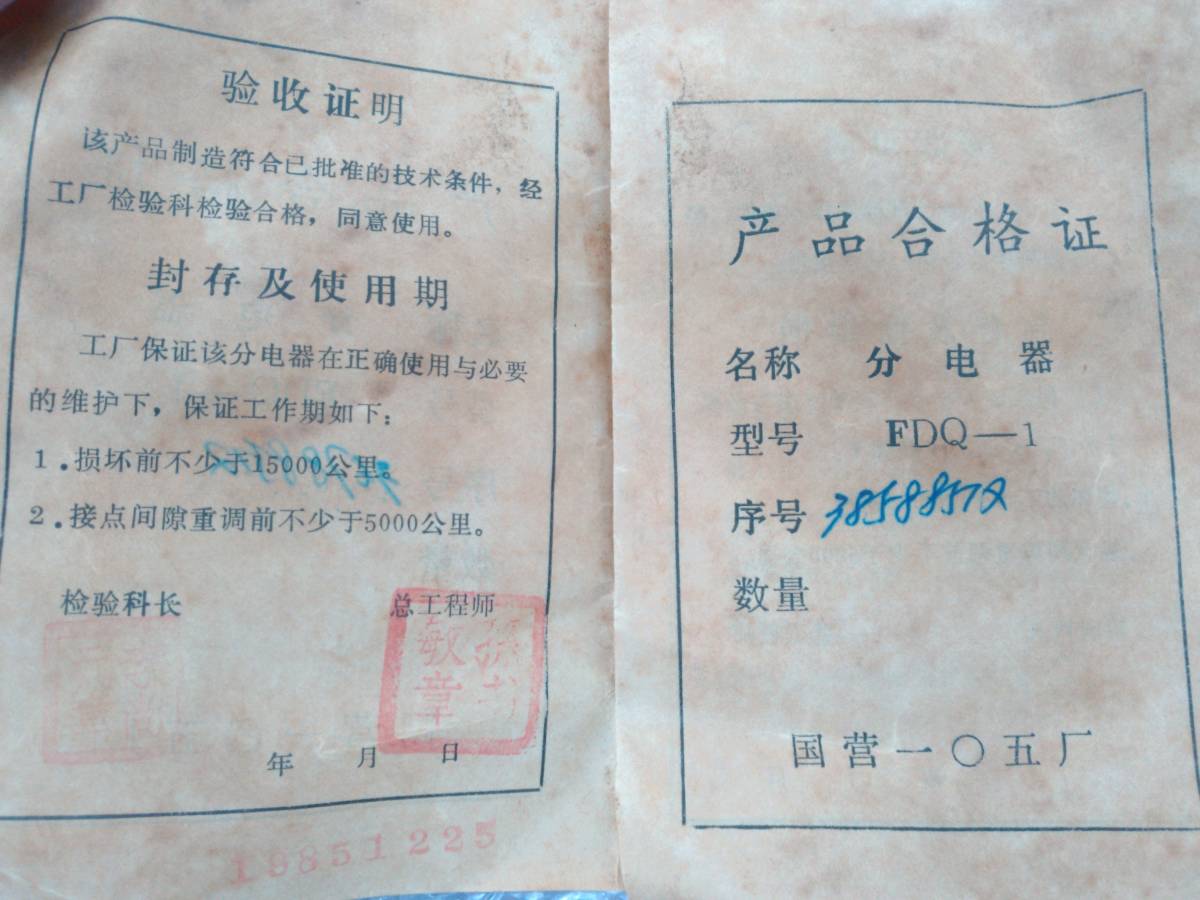 验收证明
该产品制造符合已批准的技术条件，经
工厂检验科检验合格，同意使用。
封存及使用期
工厂保证该分电器在正确使用与必要
的维护下，保证工作期如下：
1．损坏前不少于15000公里。
2．接点间隙重调前不少于5000公里。
检验科长 总工程师
年 月 日
19851225
产品合格证
名称 分电器
型号 FDQ—1
序号
数量
国营一〇五厂